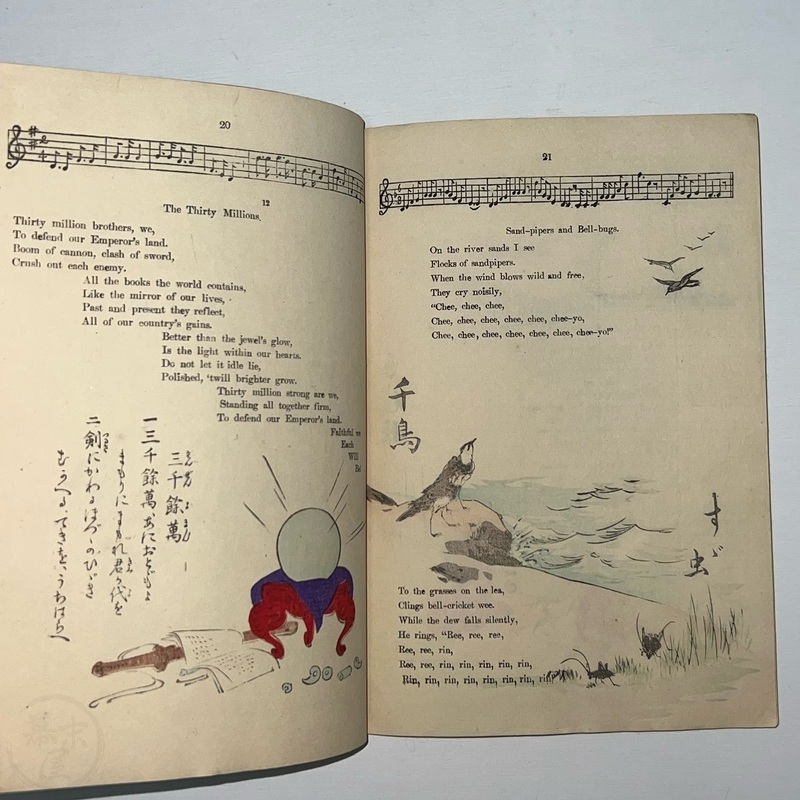 20
12
The Thirty Millions.
Thirty million brothers, we,
To defend our Emperor's land.
Boom of cannon, clash of sword,
Crush out each enemy.
All the books the world contains,
Like the mirror of our lives,
Past and present they reflect,
All of our country's gains.
Better than the jewel's glow,
Is the light within our hearts.
Do not let it idle lie,
Polished, 'twill brighter grow.
Thirty million strong are we,
Standing all together firm,
To defend our Emperor's land.
Faithful we
Each
Will
三千餘萬
一三千餘萬あにおとゞもよ
まもりにまもれ君が代を
二剣にかわるほづゝのひゞき
むかへる、てきを、うちはらへ
21
Sand-pipers and Bell-bugs.
On the river sands I see
Flocks of sandpipers.
When the wind blows wild and free,
They cry noisily,
"Chee, chee, chee,
Chee, chee, chee, chee, chee, chee-yo,
Chee, chee, chee, chee, chee, chee, chee-yo!"
千鳥
すゞ虫
To the grasses on the lea,
Clings bell-cricket wee.
While the dew falls silently,
He rings, "Ree, ree, ree,
Ree, ree, rin,
Ree, ree, rin, rin, rin, rin, rin,
Rin, rin, rin, rin, rin, rin, rin, rin,